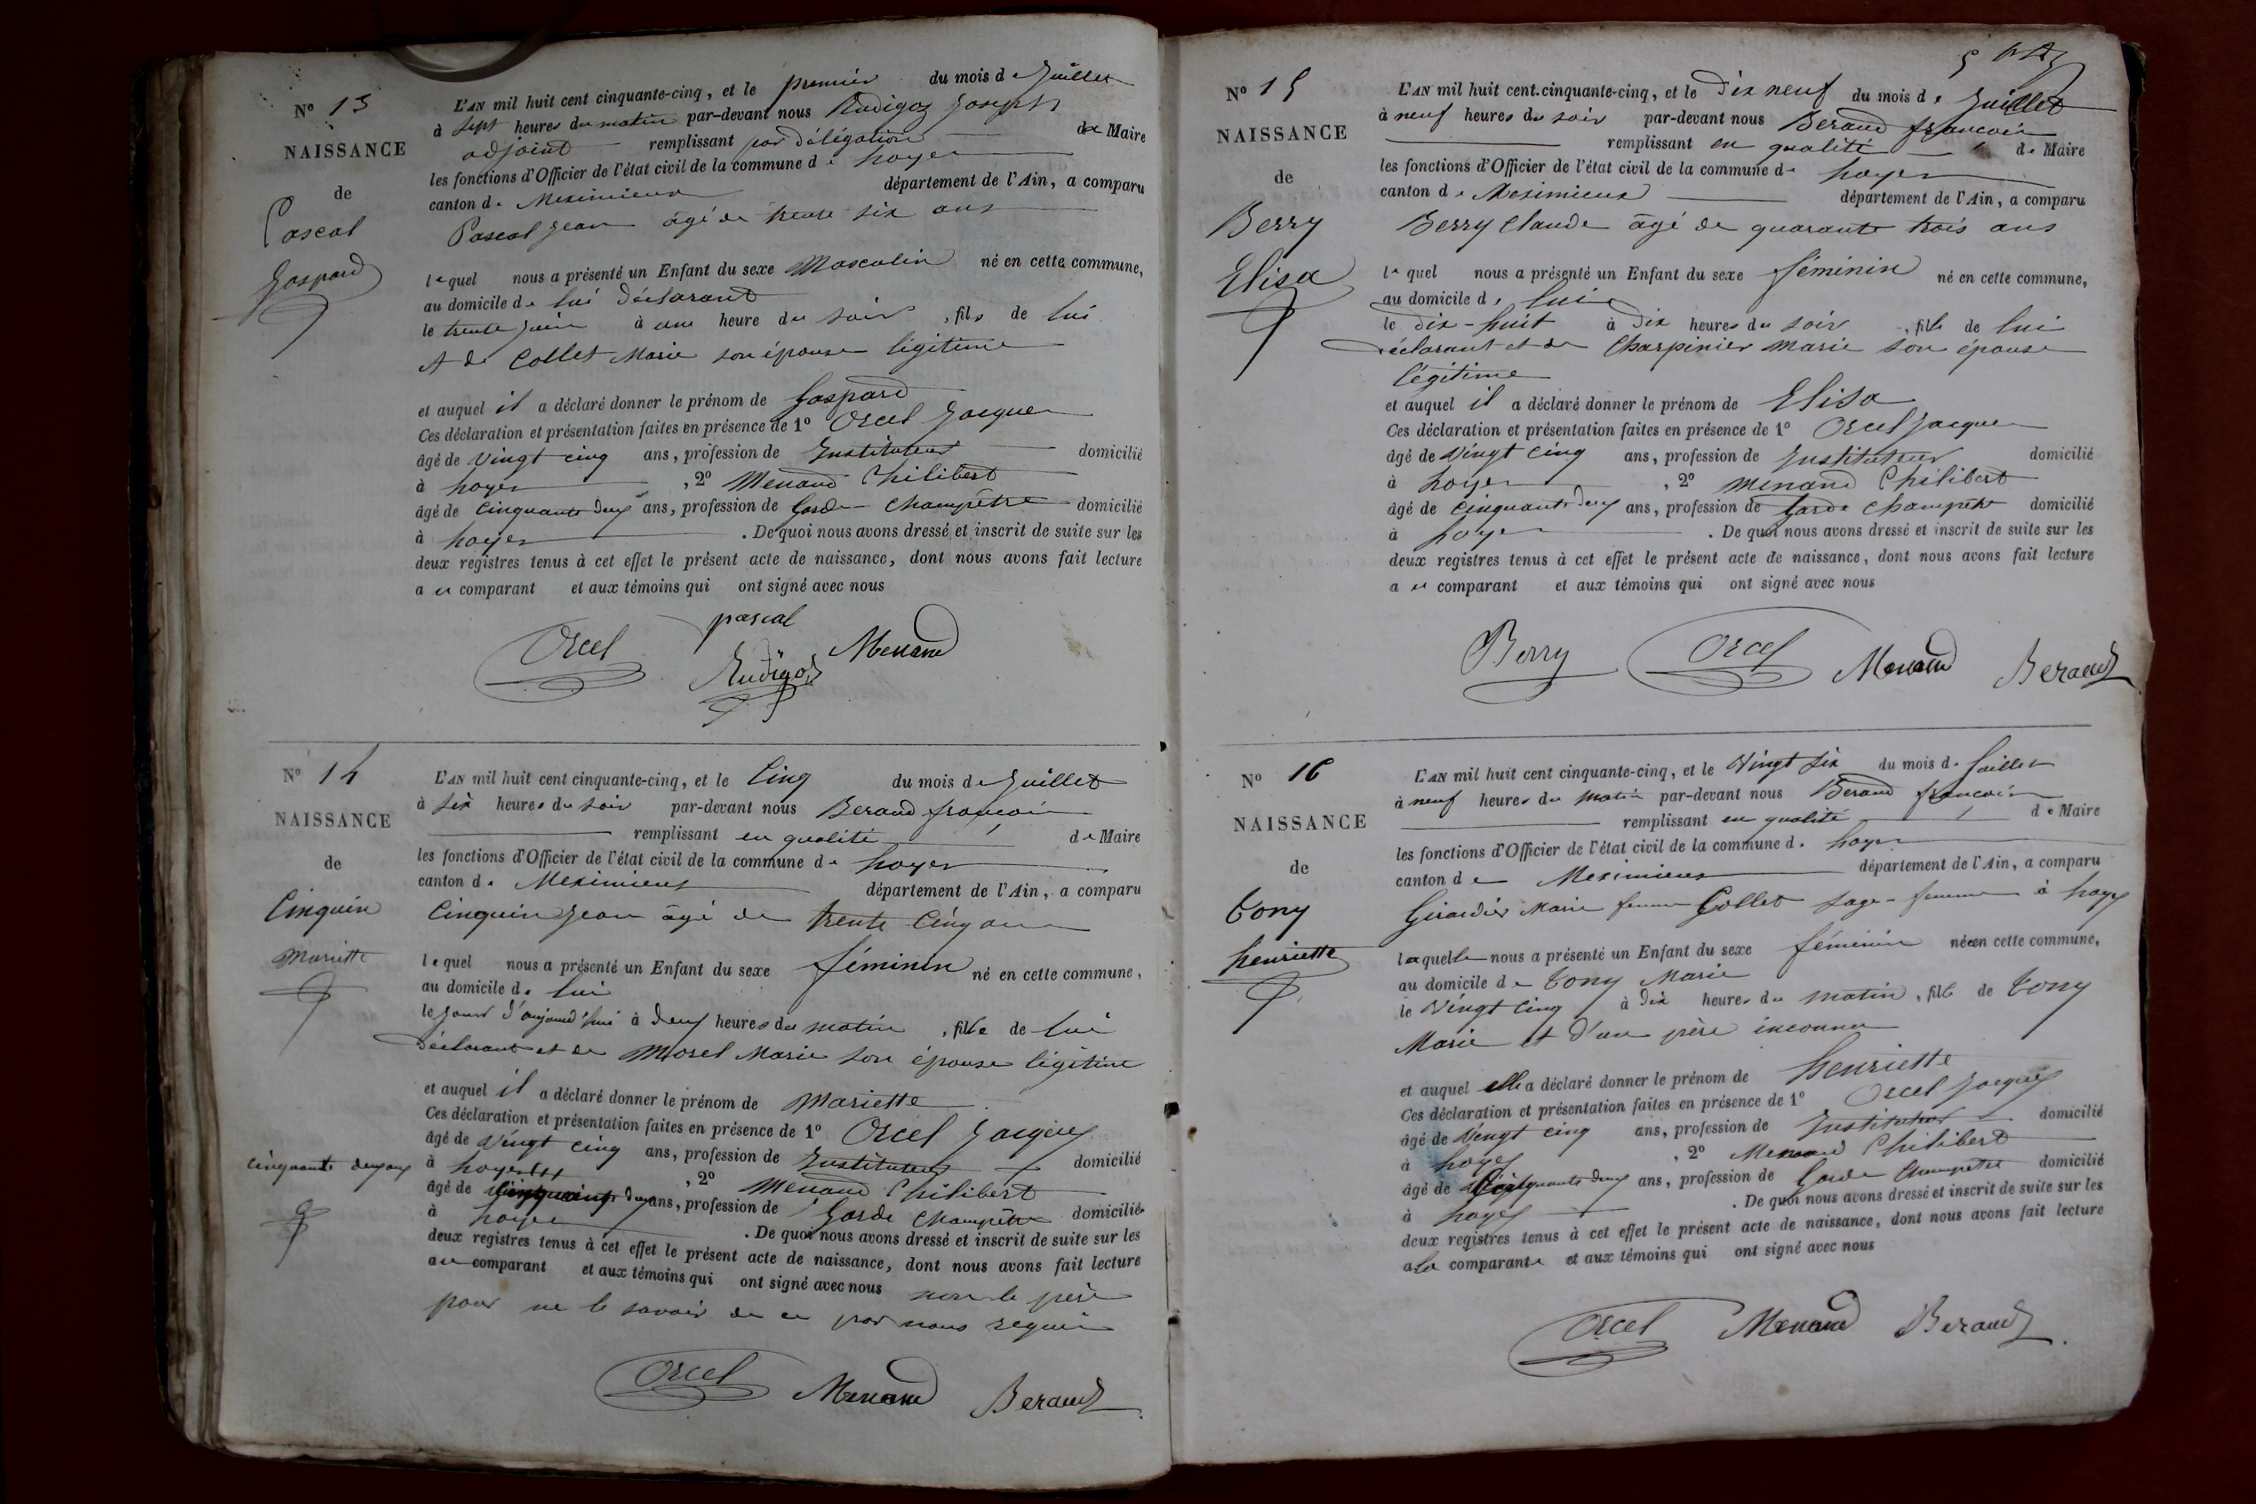 N° 13
NAISSANCE
de
Pascal
Gaspard
L'AN mil huit cent cinquante-cinq, et le premier du mois de Juillet
à sept heures du matin par-devant nous Rudigoz Joseph
adjoint remplissant par délégation de Maire
les fonctions d'Officier de l'état civil de la commune de Loyes
canton de Meximieux département de l'Ain, a comparu
Pascal Jean âgé de trente six ans
lequel nous a présenté un Enfant du sexe Masculin né en cette commune,
au domicile de lui déclarant
le trente juin à une heure du soir, fils de lui
et de Collet Marie son épouse légitime
et auquel il a déclaré donner le prénom de Gaspard
Ces déclaration et présentation faites en présence de 1° Orcel Jacques
âgé de vingt cinq ans, profession de Instituteur domicilié
à Loyes, 2° Menand Philibert
âgé de cinquante deux ans, profession de Garde Champêtre domicilié
à Loyes. De quoi nous avons dressé et inscrit de suite sur les
deux registres tenus à cet effet le présent acte de naissance, dont nous avons fait lecture
a ce comparant et aux témoins qui ont signé avec nous
pascal
Orcel Rudigoz Menand
N° 14
NAISSANCE
de
Cinquin
Mariette
L'AN mil huit cent cinquante-cinq, et le Cinq du mois de Juillet
à six heures du soir par-devant nous Beraud françois
remplissant en qualité de Maire
les fonctions d'Officier de l'état civil de la commune de Loyes
canton de Meximieux département de l'Ain, a comparu
Cinquin Jean âgé de trente cinq ans
lequel nous a présenté un Enfant du sexe féminin né en cette commune,
au domicile de lui
le jour d'aujourd'hui à deux heures du matin, fille de lui
déclarant et de Morel Marie son épouse légitime
et auquel il a déclaré donner le prénom de Mariette
Ces déclaration et présentation faites en présence de 1° Orcel Jacques
âgé de vingt cinq ans, profession de Instituteur domicilié
à Loyes, 2° Menand Philibert
cinquante deux ans
âgé de deux ans, profession de Garde Champêtre domicilié
à Loyes. De quoi nous avons dressé et inscrit de suite sur les
deux registres tenus à cet effet le présent acte de naissance, dont nous avons fait lecture
a ce comparant et aux témoins qui ont signé avec nous non le père
pour ne le savoir de ce par nous requis
Orcel Menand Beraud
N° 15
NAISSANCE
de
Berry
Elisa
L'AN mil huit cent cinquante-cinq, et le dix neuf du mois de Juillet
à neuf heures du soir par-devant nous Beraud françois
remplissant en qualité de Maire
les fonctions d'Officier de l'état civil de la commune de Loyes
canton de Meximieux département de l'Ain, a comparu
Berry Claude âgé de quarante trois ans
lequel nous a présenté un Enfant du sexe féminin né en cette commune,
au domicile de lui
le dix-huit à dix heures du soir, fille de lui
déclarant et de Charpinier Marie son épouse
légitime
et auquel il a déclaré donner le prénom de Elisa
Ces déclaration et présentation faites en présence de 1° Orcel Jacques
âgé de vingt cinq ans, profession de Instituteur domicilié
à Loyes, 2° Menand Philibert
âgé de cinquante deux ans, profession de Garde Champêtre domicilié
à Loyes. De quoi nous avons dressé et inscrit de suite sur les
deux registres tenus à cet effet le présent acte de naissance, dont nous avons fait lecture
a ce comparant et aux témoins qui ont signé avec nous
Berry Orcel Menand Beraud
N° 16
NAISSANCE
de
Tony
henriette
L'AN mil huit cent cinquante-cinq, et le Vingt six du mois de Juillet
à neuf heures du matin par-devant nous Beraud françois
remplissant en qualité de Maire
les fonctions d'Officier de l'état civil de la commune de Loyes
canton de Meximieux département de l'Ain, a comparu
Girardier Marie femme Collet sage-femme à Loyes
laquelle nous a présenté un Enfant du sexe féminin née en cette commune,
au domicile de Tony Marie
le vingt cinq à dix heures du matin, fille de Tony
Marie et d'un père inconnu
et auquel elle a déclaré donner le prénom de henriette
Ces déclaration et présentation faites en présence de 1° Orcel Jacques
âgé de vingt cinq ans, profession de Instituteur domicilié
à Loyes, 2° Menand Philibert
âgé de Cinquante deux ans, profession de Garde Champêtre domicilié
à Loyes. De quoi nous avons dressé et inscrit de suite sur les
deux registres tenus à cet effet le présent acte de naissance, dont nous avons fait lecture
a la comparante et aux témoins qui ont signé avec nous
Orcel Menand Beraud